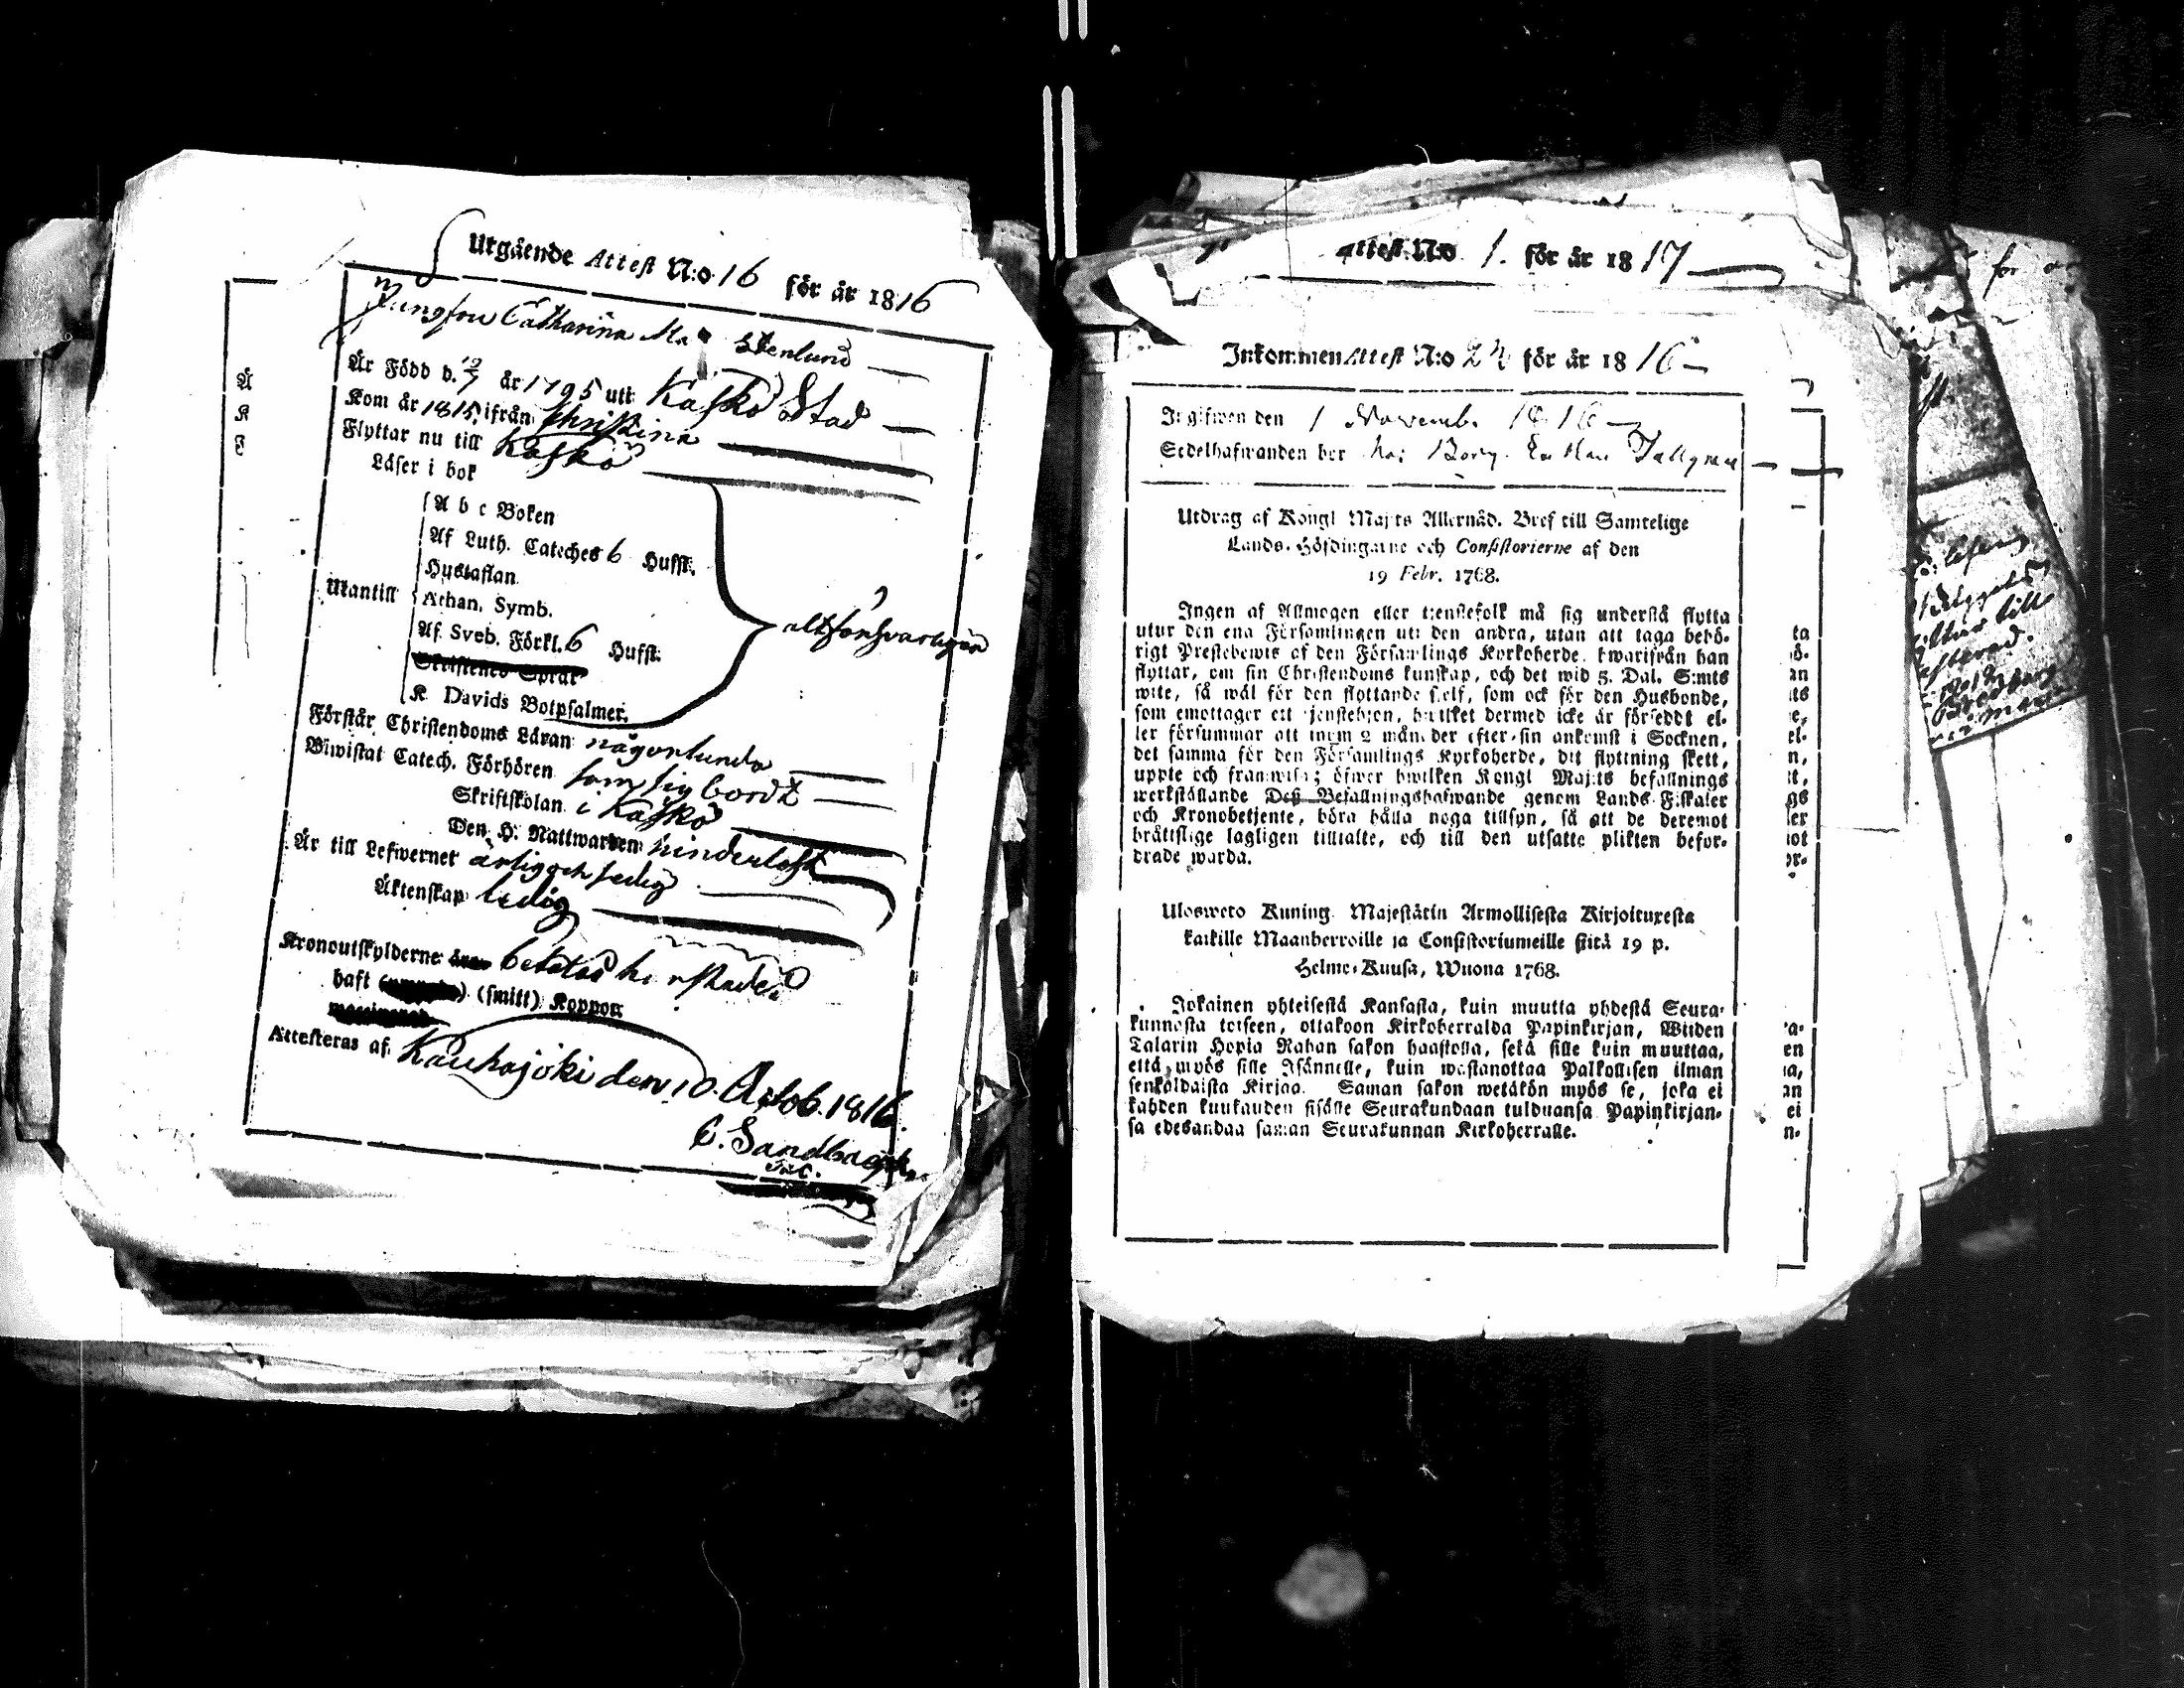 Utgående Attest N:o 16 för år 1816
Jungfru Catharina Ma Stenlund
Är Född d. 12/7 år 1795 uti Kaskö Stad
Kom år 1815 ifrån Christina
Flyttar nu till Kaskö
Läser i bok
A b c Boken
Af Luth. Cateches 6 Hufst.
Hustaflan
Utantill Athan. Symb.
Af Sveb. Förkl. 6 Hufst.
Skriftenes Språk
K. Davids Botpsalmer.
alt försvarligen
Förstår Christendoms Läran någorlunda
Biwistat Catech. Förhören som sig bordt
Skriftskolan i Kaskö
Den H. Nattwarden hinderlöst
Är till Lefwernet ärlig och sedig
Äktenskap ledig
Kronoutskylderne äro betalad
haft (smitt) Koppor
Attesteras af Kauhajoki den 10. Octob. 1816.
C. Sandbacka
Attest N:o 1. för år 1817
Inkommen Attest N:o 24 för år 1816
Ingifwen den 1 Novemb. 1816
Sedelhafwanden bor hos Borg. Tallgren
Utdrag af Kongl Maj:ts Allernåd. Bref till Samtelige
Lands-Höfdingarne och Consistorierne af den
19 Febr. 1768.
Ingen af Allmogen eller tjenstefolk må sig understå flytta
utur den ena Församlingen uti den andra, utan att taga behö-
rigt Prestebewis af den Församlings Kyrkoherde, hwarifrån han
flyttar, om sin Christendoms kunskap, och det wid 5. Dal. S:mts
wite, så wäl för den flyttande self, som ock för den Husbonde,
som emottager ett tjenstehjon, hwilket dermed icke är försedt el-
ler försummar att inom 2 månader efter sin ankomst i Socknen,
det samma för den Församlings Kyrkoherde, dit flyttning skett,
uppte och framwisa; öfwer hwilken Kongl Maj:ts befallnings
werkställande Dess Befallningshafwande genom Lands-Fiskaler
och Kronobetjente, böra hålla noga tillsyn, så att de deremot
bråttslige lagligen tilltalte, och till den utsatte plikten befor-
drade warda.
Ulosweto Kuning. Majestätin Armollisesta Kirjoituxesta
kaikille Maanherroille ja Consistoriumeille siitä 19 p.
Helme-Kuusa, Wuona 1768.
Jokainen yhteisestä Kansasta, kuin muutta yhdestä Seura-
kunnasta toiseen, ottakoon Kirkoherralda Papinkirjan, Wiiden
Talarin Hopia Rahan sakon haastolla, sekä sille kuin muuttaa,
että myös sille Isännelle, kuin wastanottaa Palkollisen ilman
senkaldaista Kirjaa. Saman sakon wetäkön myös se, joka ei
kahden kuukauden sisälle Seurakundaan tulduansa Papinkirjan-
sa edesandaa saman Seurakunnan Kirkoherralle.